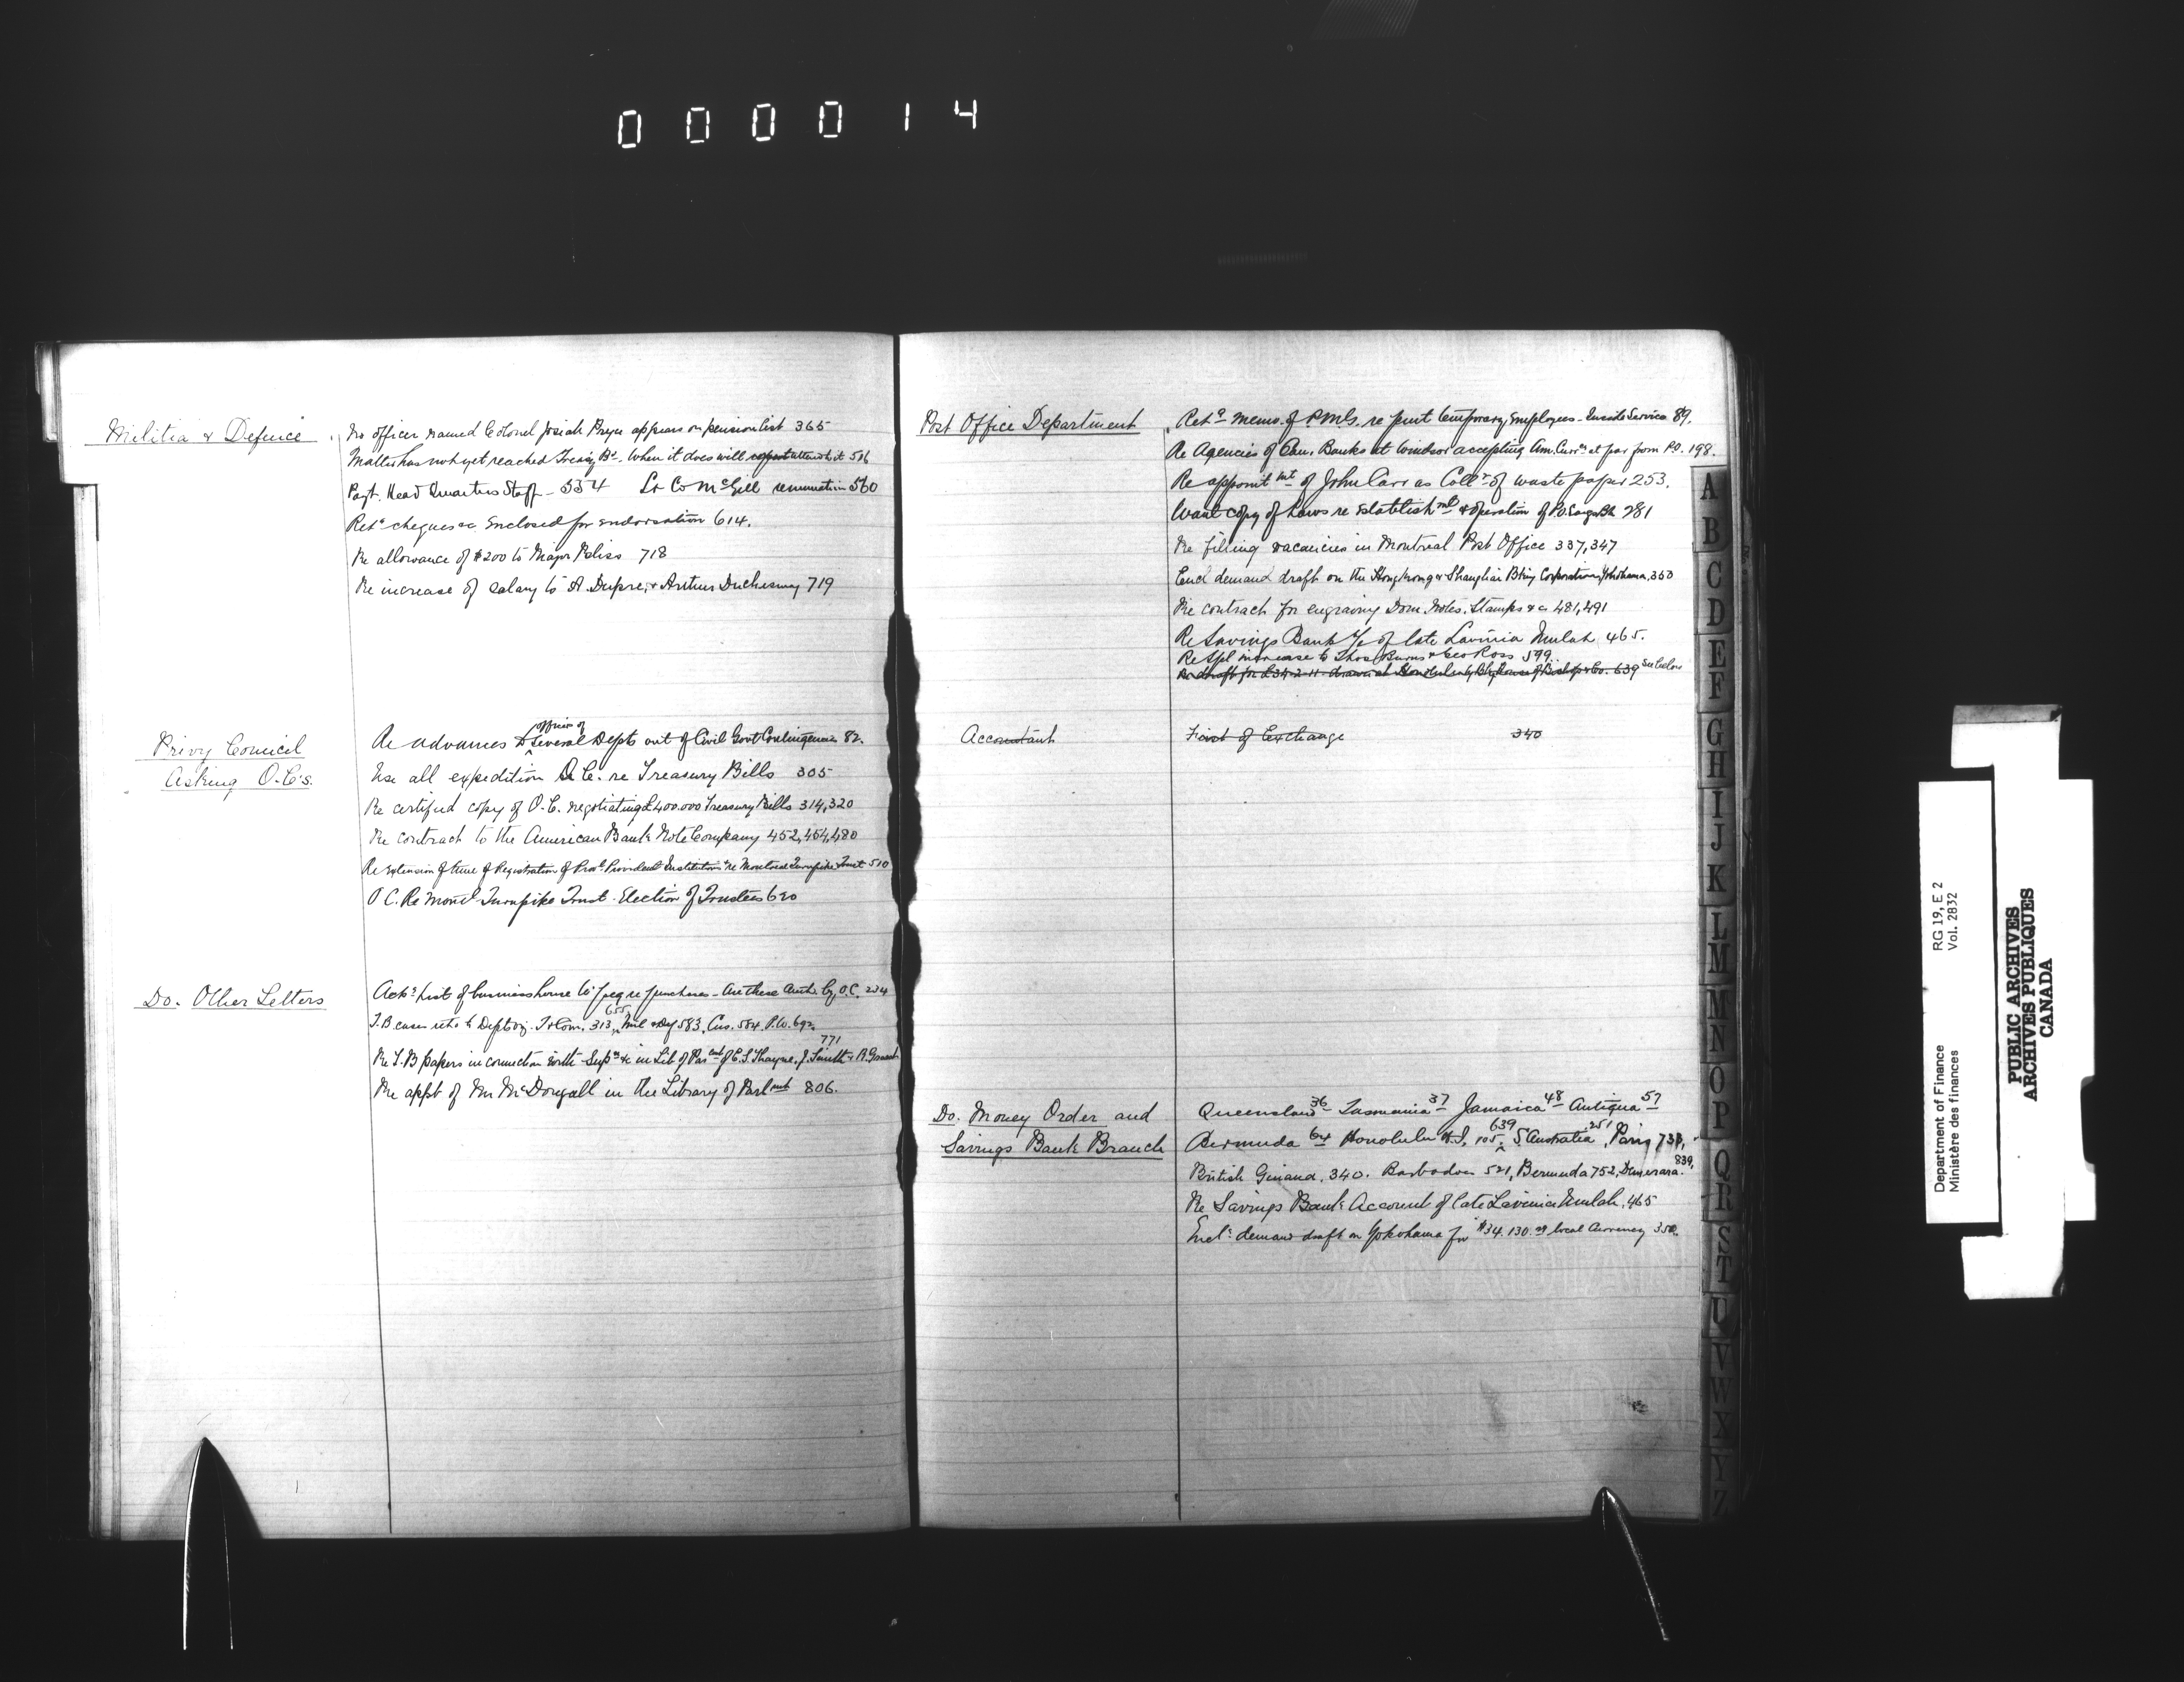 000014
Militia & Defence
No officer named Colonel Josiah Pryce appears on pension list 365
Matter has not yet reached Treasy Bd. When it does will attend to it 506
Payt. Head Quarters Staff - 334 Lt Co McGill remuneration 560
Retd cheques &c enclosed for endorsation 614.
Re allowance of $200 to Major Bliss 718
Re increase of salary to A. Dupre, & Arthur Duchesnay 719
Privy Council
Asking O.C's.
Re advances to officers of several Depts out of Civil Govt Contingencies 82.
Use all expedition O.C. re Treasury Bills 305
Re certified copy of O.C. negotiating £400.000 Treasury Bills 314,320
Re contract to the American Bank Note Company 452,454,480
Re extension of time of Registration of Provl Provident Institution & re Montreal Turnpike Trust 510
O C. Re Montl Turnpike Trust. Election of Trustees 620
Do. Other Letters
Ackg List of business house re purchases - Are these Auth. by O.C. 224
T.B cases retd to Depts viz. T & Com. 313, 655, Mil & Def 583, Cus. 584. P.W. 692.
Re T.B papers in connection with Supn &c in Lib of Parlent of C.S. Thayne, J. Smith & 771
Re appt of Mr McDougall in the Library of Parlmt 806.
Post Office Department
Retd memo. of P.M.G. re temporary Employees - Inside Service 89.
Re Agencies of Can. Banks at Windsor accepting Am. Curry at par from P.O. 198.
Re appointmt of John Carr as Collr of waste paper 253.
Want copy of Laws re establishmt & operation of P.O. Savgs Bk 281
Re filling vacancies in Montreal Post Office 337,347
Encl demand draft on the Hongkong & Shanghai Bking Corporation, Yokohama, 350
Re contract for engraving Dom. Notes, Stamps &c 481,491
Re Savings Bank a/c of late Lavinia 465.
Re Spl increase to Thos Burns & Geo Ross 599.
Re draft for £34-2-11 drawn at Honolulu by Bkg House of Bishop & Co. 639 See below
Accountant
First of Exchange 340
Do. Money Order and
Savings Bank Branch
Queensland 36 - Tasmania 37 - Jamaica 48 - Antigua 57
Bermuda 64 Honolulu H.I. 105, 639, S. Australia 251, Paris 738,
British Guiana, 340. Barbadoes 521, Bermuda 752, Demerara 839,
Re Savings Bank Account of late Lavinia 465
Encl: demand draft on Yokohama for $34.130.09 local Currency 350.
A
B
C
D
E
F
G
H
I
J
K
L
M
M
N
O
P
Q
R
S
T
U
V
W
X
Y
Z
Department of Finance
Ministère des finances
RG 19, E 2
Vol. 2832
PUBLIC ARCHIVES
ARCHIVES PUBLIQUES
CANADA